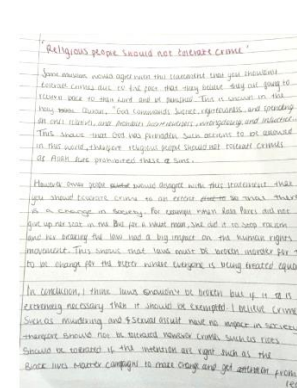 "Religious people should not tolerate crime"
Some muslims would agree with this statement that you shouldnt
tolerate crimes due to the fact that they believe they are going to
return back to their lord and be punished. This is shown in the
holy Quran, "God commands justice, righteousness, and spending
on ones relatives, and
This shows that God has forbidden such actions to be allowed
in this world, therefore religious people should not tolerate crimes
as Allah has prohibited these as sins.
However other people would disagree with this statement that
you should tolerate crime to an extent so that there
is a change in society. For example when Rosa Parks did not
give up her seat in the Bus for a white man. She did it to stop racism
and her breaking the law had a big impact on the human rights
movement. This shows that laws must be broken in order for
to be change for the better where everyone is being treated equal
In conclusion, I think laws shouldn't be broken but if it is
extremely necessary then it should be exempted. I believe crimes
such as murdering and sexual assault have no impact in society
therefore should not be tolerated however crimes such as riots
should be tolerated if the intention are right such as the
Black lives Matter campaign to make change and get attention from